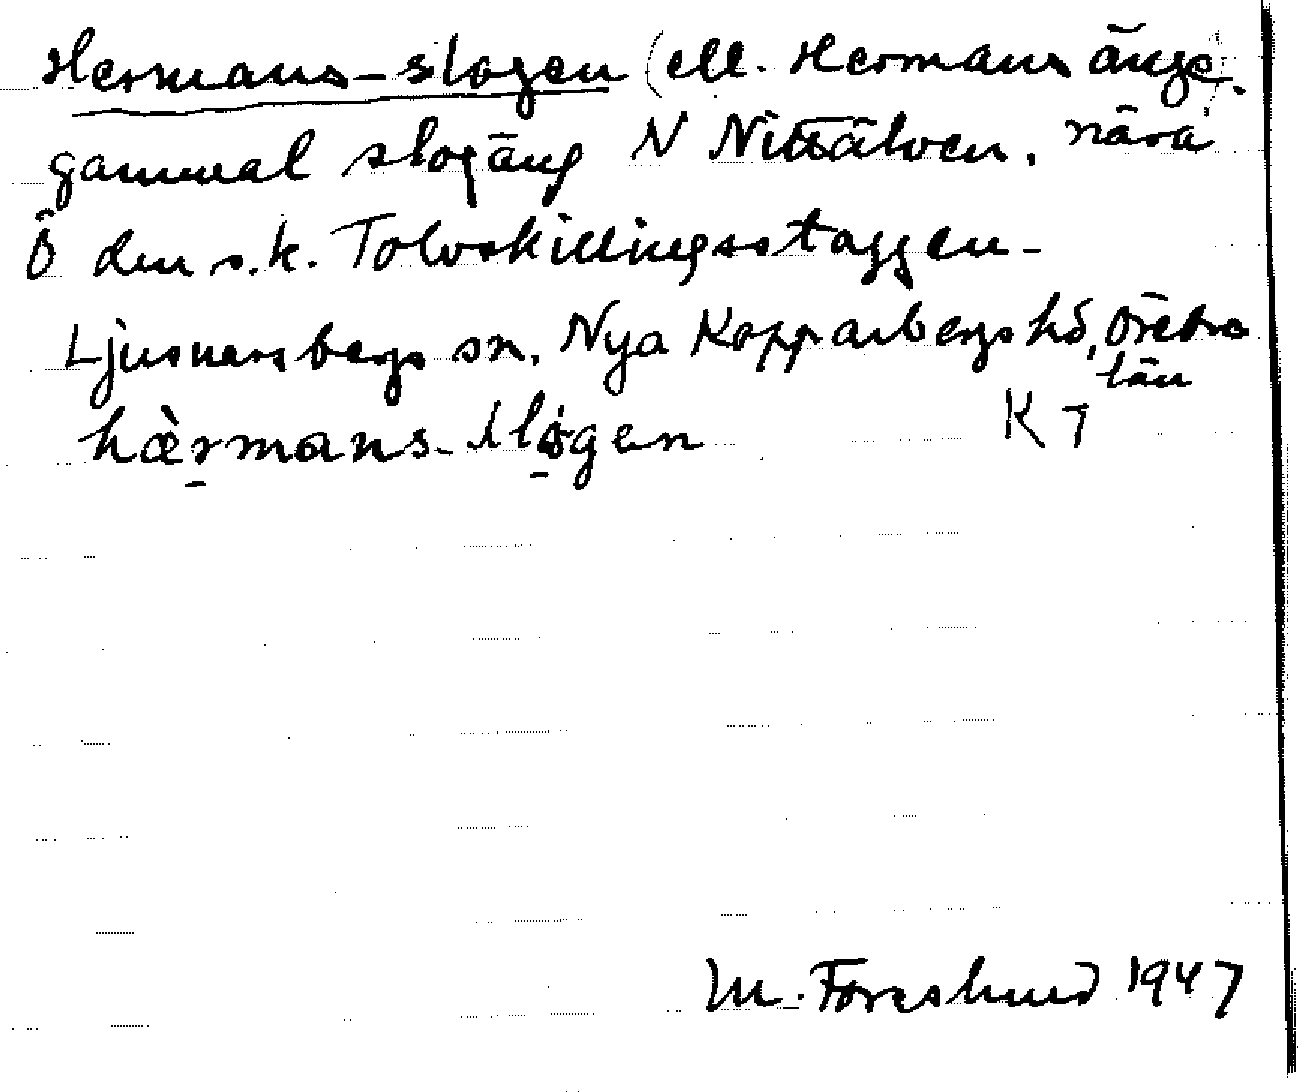 Hermans-slogen (ell. Hermans änge).
gammal slogäng N Nittälven, nära
Ö den s.k. Tolvskillingsstaggen-
Ljusnarsbergs sn. Nya Kopparbergs hd, Örebro
län
hæ̀rmans-slógen K 7
M. Foreslund 1947